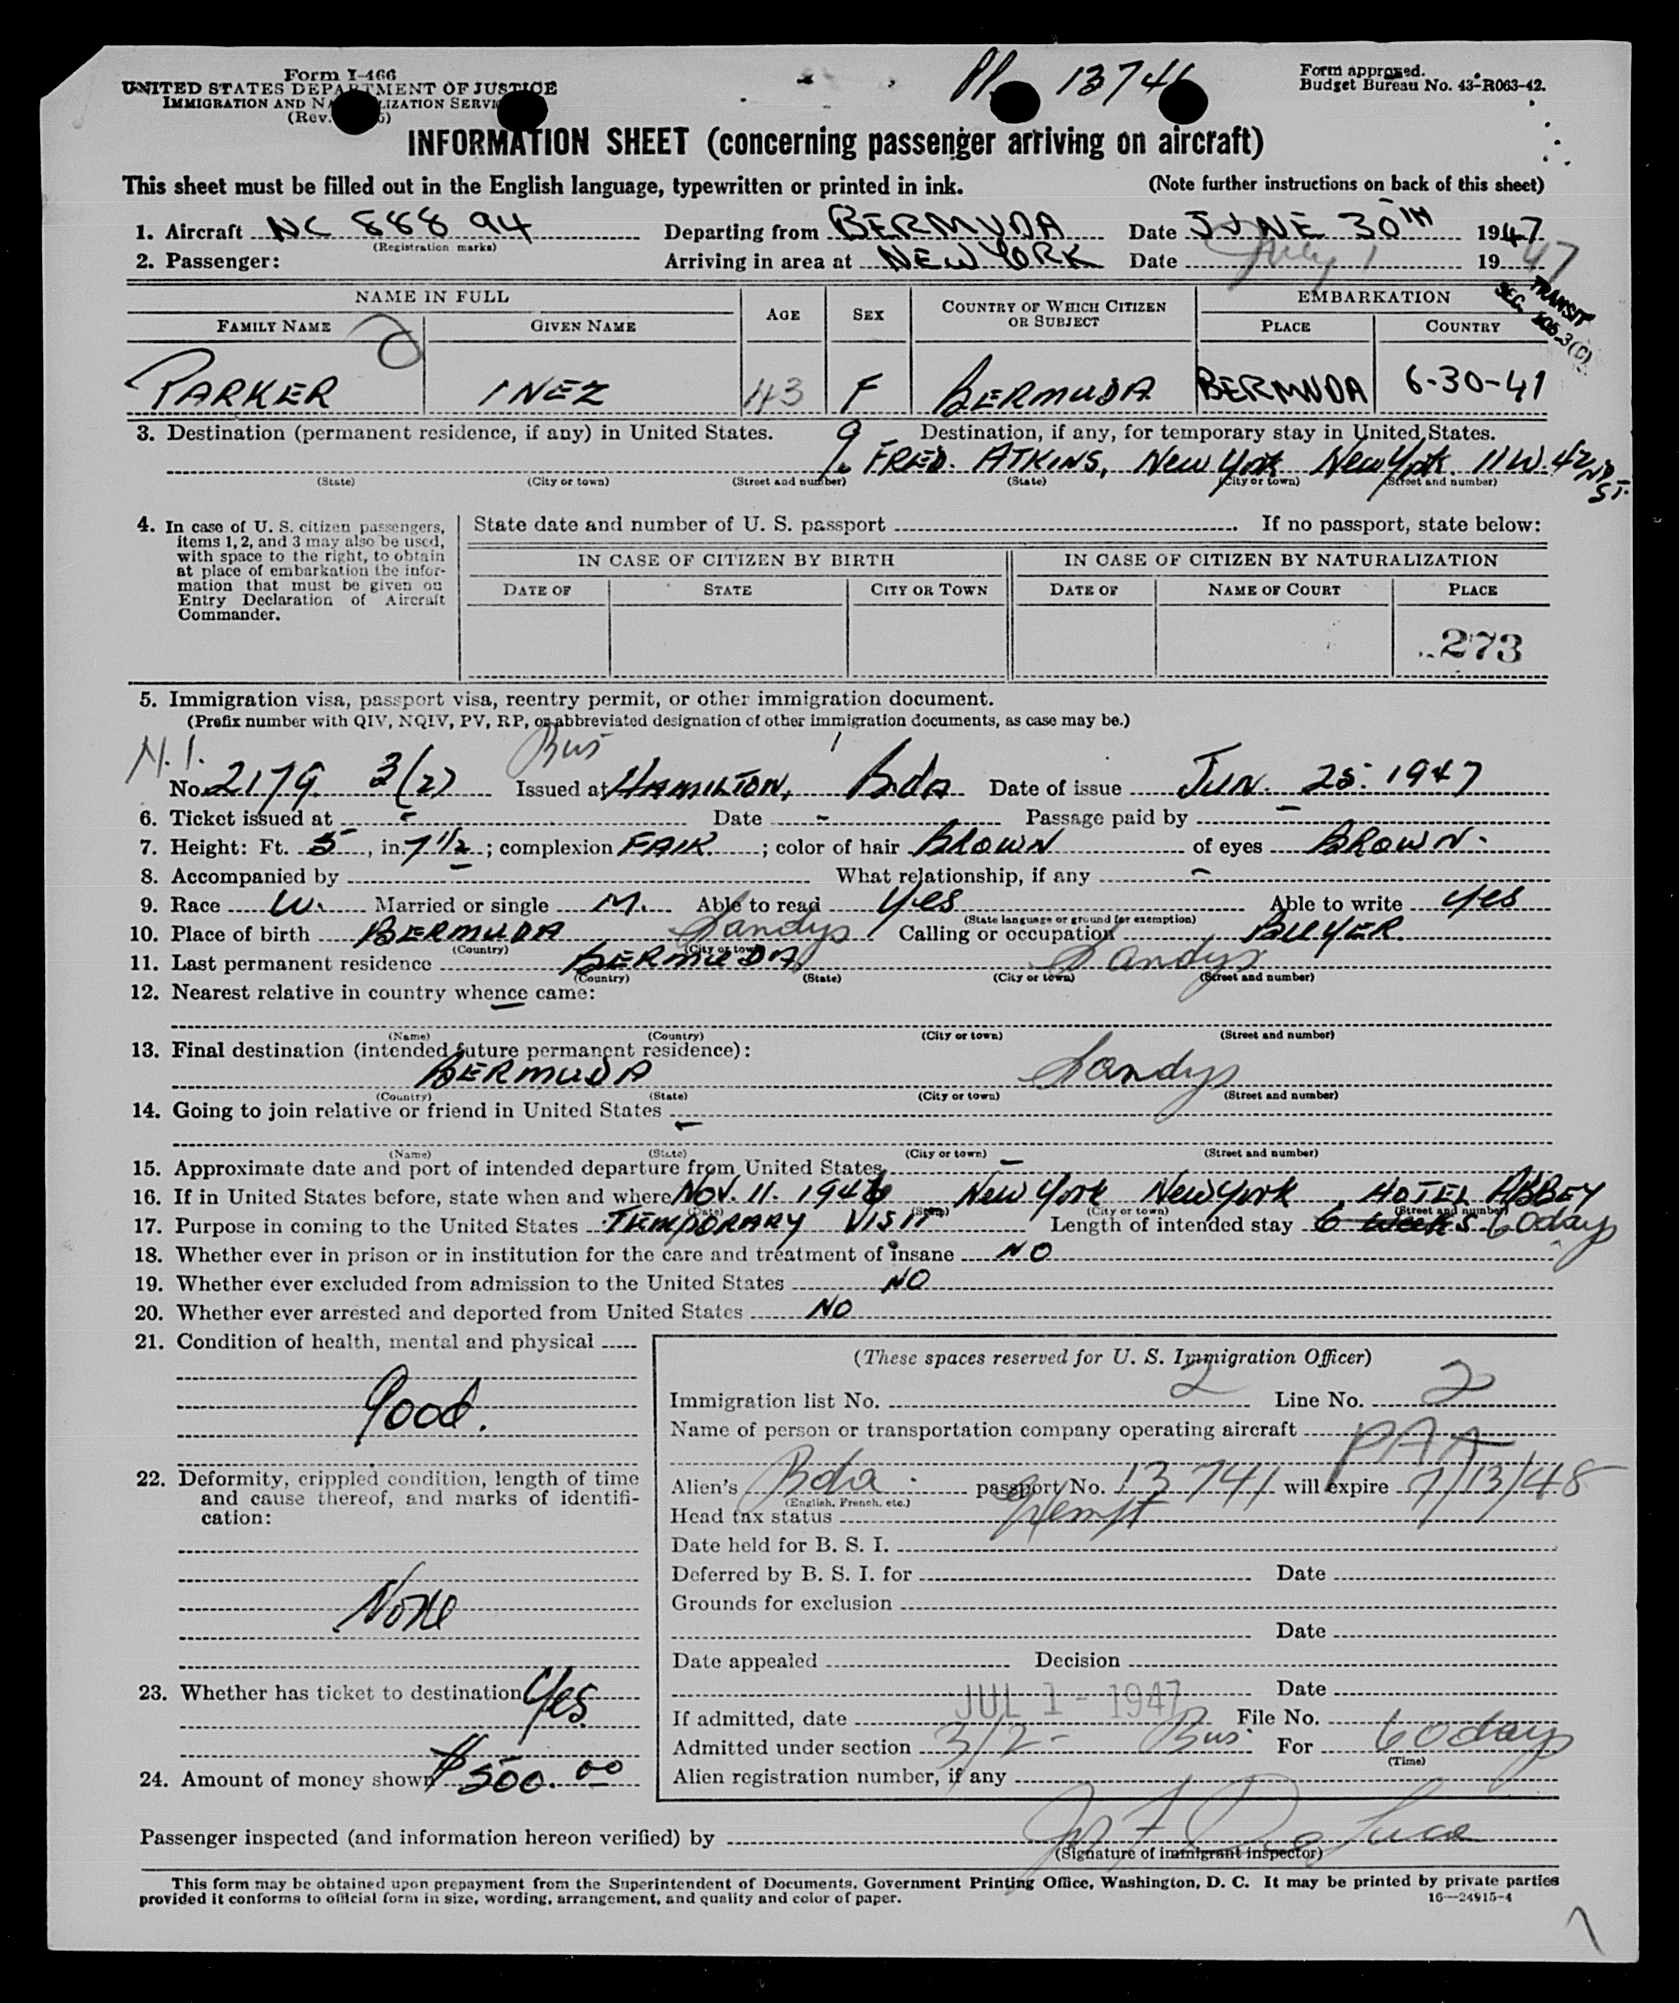 Form I-466
UNITED STATES DEPARTMENT OF JUSTICE
IMMIGRATION AND NATURALIZATION SERVICE
(Rev.
13746
Form approved.
Budget Bureau No. 43-R063-42.
INFORMATION SHEET (concerning passenger arriving on aircraft)
This sheet must be filled out in the English language, typewritten or printed in ink. (Note further instructions on back of this sheet)
1. Aircraft NC 88894 Departing from BERMUDA Date JUNE 30TH 1947
(Registration marks)
2. Passenger: Arriving in area at NEW YORK Date July 1 1947
TRANSIT
SEC. 105.3(C)
NAME IN FULL AGE SEX COUNTRY OF WHICH CITIZEN OR SUBJECT EMBARKATION
FAMILY NAME GIVEN NAME PLACE COUNTRY
PARKER INEZ 43 F BERMUDA BERMUDA 6-30-47
3. Destination (permanent residence, if any) in United States. Destination, if any, for temporary stay in United States.
% FRED. ATKINS, New York New York 11 W. 42ND ST.
(State) (City or town) (Street and number) (State) (City or town) (Street and number)
4. In case of U. S. citizen passengers, items 1, 2, and 3 may also be used, with space to the right, to obtain at place of embarkation the information that must be given on Entry Declaration of Aircraft Commander.
State date and number of U. S. passport . If no passport, state below:
IN CASE OF CITIZEN BY BIRTH IN CASE OF CITIZEN BY NATURALIZATION
DATE OF STATE CITY OR TOWN DATE OF NAME OF COURT PLACE
273
5. Immigration visa, passport visa, reentry permit, or other immigration document.
(Prefix number with QIV, NQIV, PV, RP, or abbreviated designation of other immigration documents, as case may be.)
N.I. Bus
No. 2179 3(2) Issued at HAMILTON, BdA Date of issue JUN. 25. 1947
6. Ticket issued at - Date - Passage paid by -
7. Height: Ft. 5, in 7 1/2; complexion FAIR; color of hair BROWN of eyes BROWN.
8. Accompanied by - What relationship, if any -
9. Race W. Married or single M. Able to read Yes Able to write Yes
(State language or ground for exemption)
10. Place of birth BERMUDA Sandys Calling or occupation BUYER.
(Country) (City or town)
11. Last permanent residence BERMUDA, Sandys
(Country) (State) (City or town) (Street and number)
12. Nearest relative in country whence came:
-
(Name) (Country) (City or town) (Street and number)
13. Final destination (intended future permanent residence):
BERMUDA Sandys
(Country) (State) (City or town) (Street and number)
14. Going to join relative or friend in United States -
(Name) (State) (City or town) (Street and number)
15. Approximate date and port of intended departure from United States -
16. If in United States before, state when and where NOV. 11. 1946 New York New York, HOTEL ABBEY
(Date) (State) (City or town) (Street and number)
17. Purpose in coming to the United States TEMPORARY VISIT Length of intended stay 6 weeks 60 days
18. Whether ever in prison or in institution for the care and treatment of insane NO
19. Whether ever excluded from admission to the United States NO
20. Whether ever arrested and deported from United States NO
21. Condition of health, mental and physical
Good.
22. Deformity, crippled condition, length of time and cause thereof, and marks of identification:
None
23. Whether has ticket to destination Yes
24. Amount of money shown $500.00
(These spaces reserved for U. S. Immigration Officer)
Immigration list No. 2 Line No. 2
Name of person or transportation company operating aircraft PAA
Alien's Bda. passport No. 13741 will expire 7/13/48
(English, French, etc.)
Head tax status Exempt
Date held for B. S. I.
Deferred by B. S. I. for Date
Grounds for exclusion
Date
Date appealed Decision
Date
If admitted, date JUL 1 - 1947 File No.
Admitted under section 3/2- Bus. For 60 days
(Time)
Alien registration number, if any
Passenger inspected (and information hereon verified) by
(Signature of immigrant inspector)
This form may be obtained upon prepayment from the Superintendent of Documents, Government Printing Office, Washington, D. C. It may be printed by private parties
provided it conforms to official form in size, wording, arrangement, and quality and color of paper. 16—24915-4